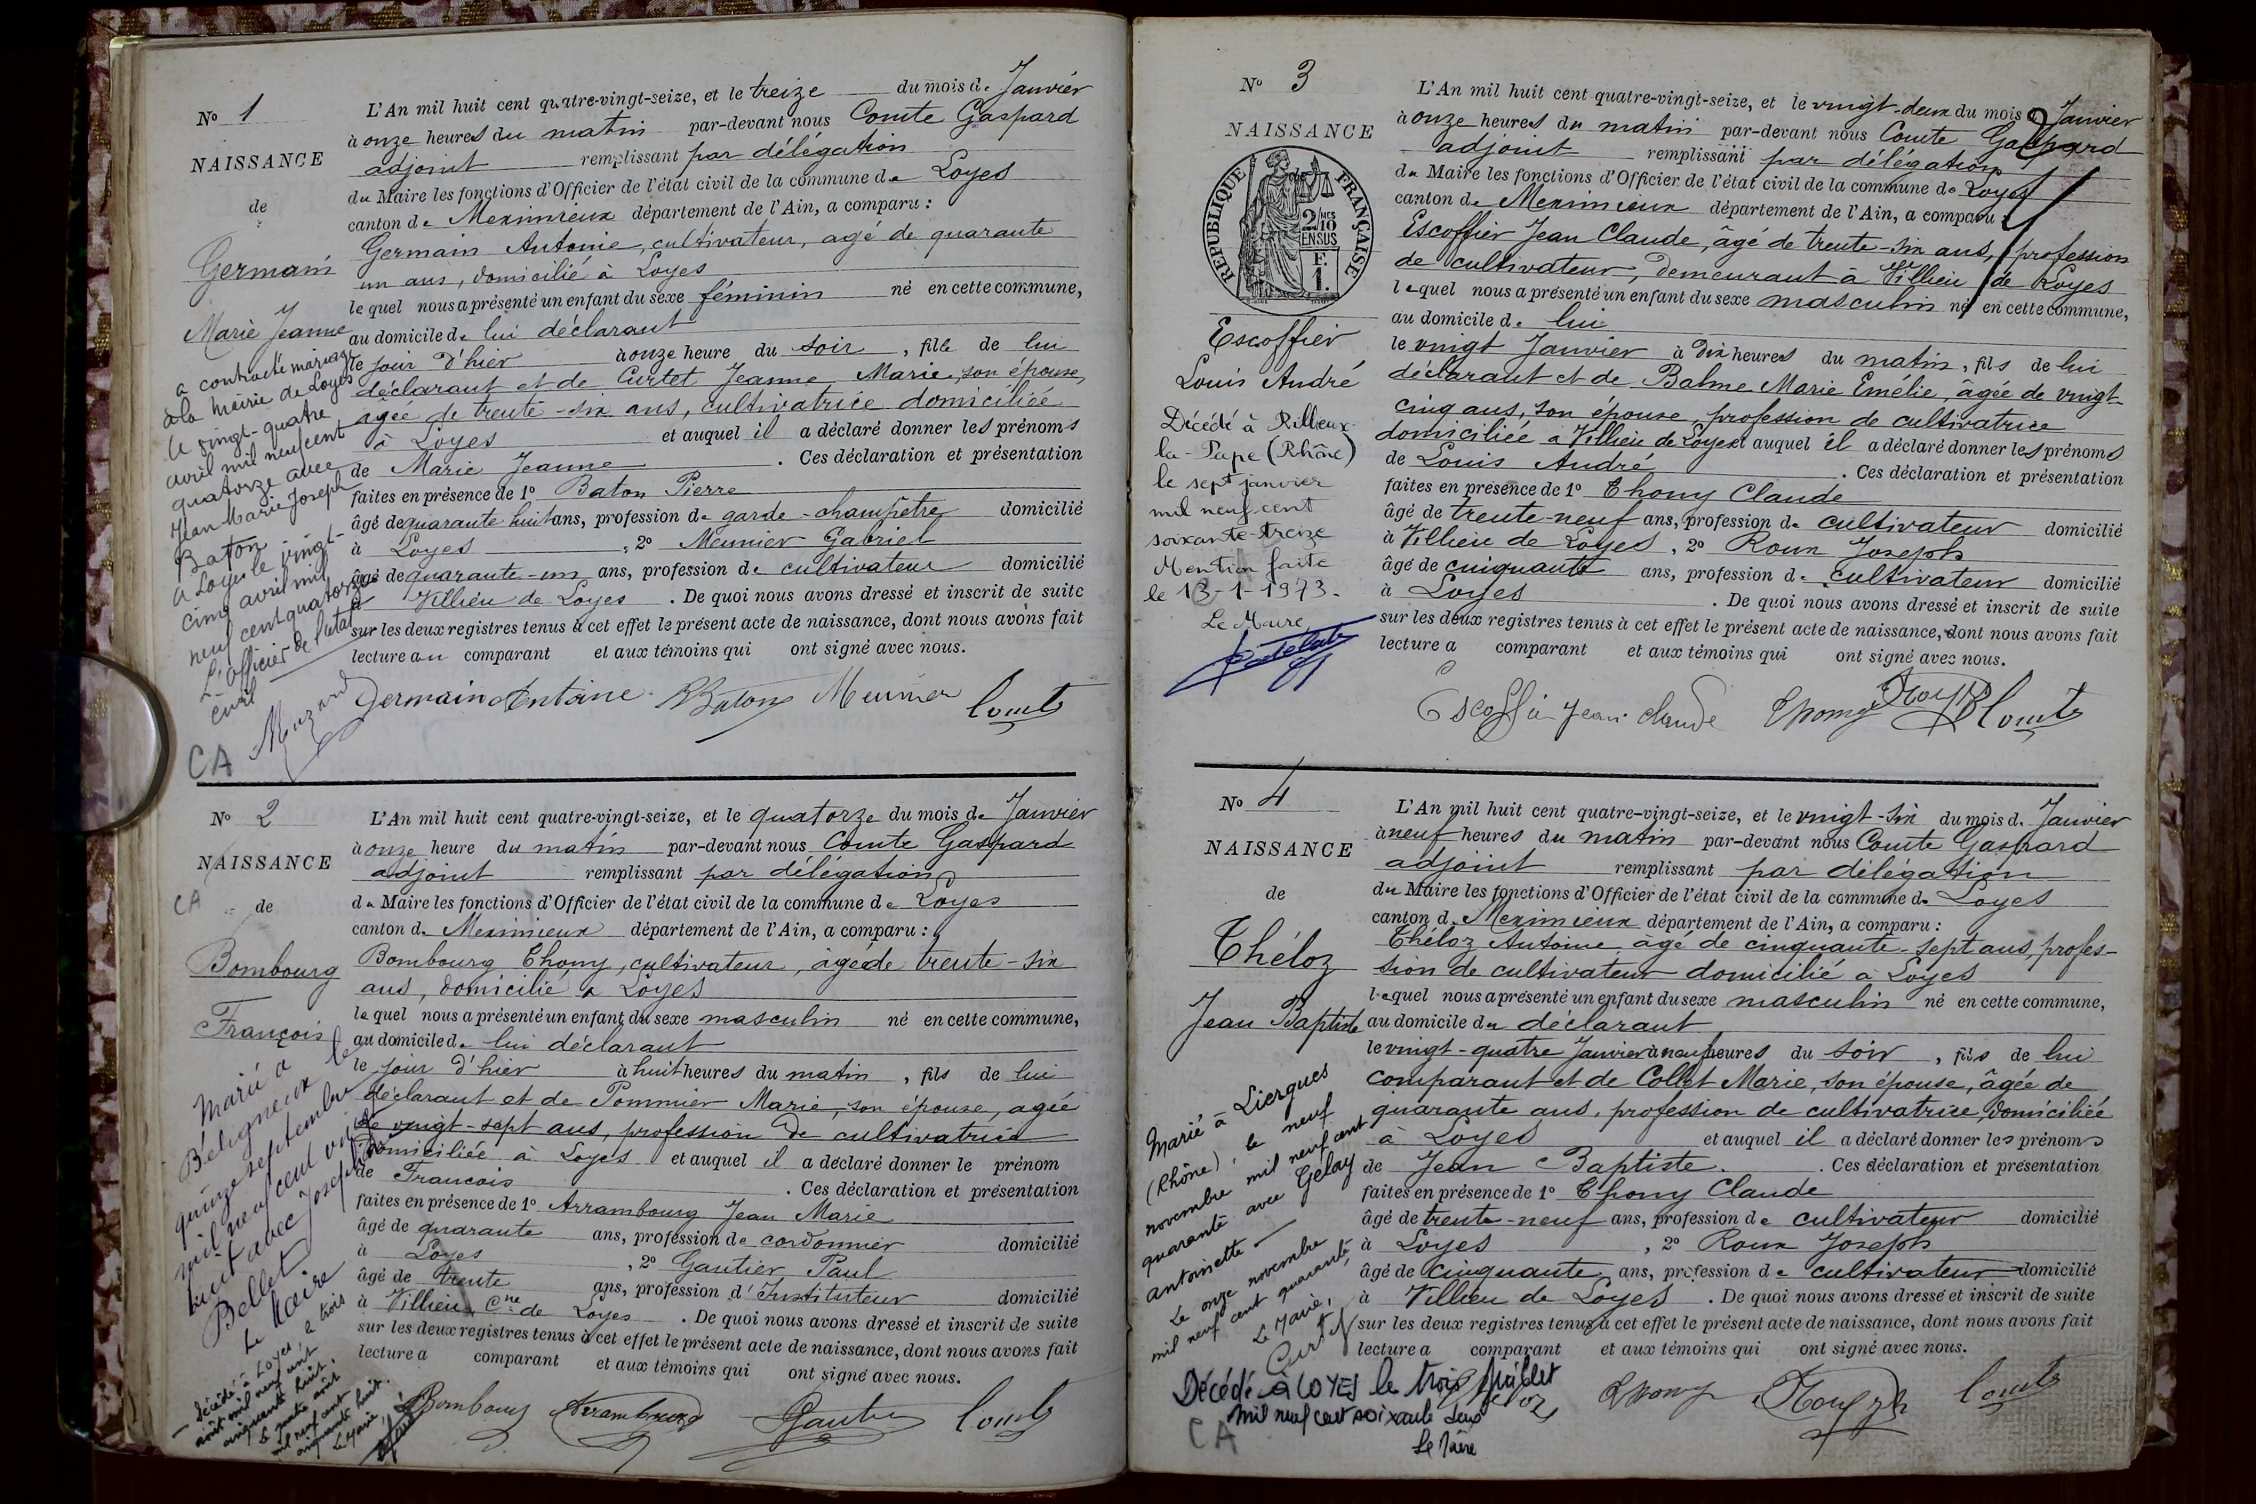 No 1
NAISSANCE
de
Germain
Marie Jeanne
a contracté mariage
à la mairie de Loyes
le vingt-quatre
avril mil neuf cent
quatorze avec
Jean Marie Joseph
Baton
a Loyes le vingt-
cinq avril mil
neuf cent quatorze
L'officier de l'état
civil
CA
L'An mil huit cent quatre-vingt-seize, et le treize du mois de Janvier
à onze heures du matin par-devant nous Comte Gaspard
adjoint remplissant par délégation
du Maire les fonctions d'Officier de l'état civil de la commune de Loyes
canton de Meximieux département de l'Ain, a comparu :
Germain Antoine, cultivateur, agé de quarante
un ans, domicilié à Loyes
lequel nous a présenté un enfant du sexe féminin né en cette commune,
au domicile de lui déclarant
le jour d'hier à onze heure du soir, fille de lui
déclarant et de Curtet Jeanne Marie, son épouse,
agée de trente-six ans, cultivatrice domiciliée
à Loyes et auquel il a déclaré donner les prénoms
de Marie Jeanne . Ces déclaration et présentation
faites en présence de 1o Baton Pierre
âgé de quarante huit ans, profession de garde-champêtre domicilié
à Loyes , 2o Meunier Gabriel
âgé de quarante-un ans, profession de cultivateur domicilié
à Villieu de Loyes . De quoi nous avons dressé et inscrit de suite
sur les deux registres tenus à cet effet le présent acte de naissance, dont nous avons fait
lecture au comparant et aux témoins qui ont signé avec nous.
Germain Antoine Baton Meunier Comte
No 2
NAISSANCE
CA de
Bombourg
François
Marié à
Béligneux le
quinze septembre
mil neuf cent vingt
huit avec Joséphine
Bellet
Le Maire
décédé à Loyes, le trois
août mil neuf cent
cinquante huit.
Le quatre août
mil neuf cent
cinquante huit.
Le Maire
L'An mil huit cent quatre-vingt-seize, et le quatorze du mois de Janvier
à onze heure du matin par-devant nous Comte Gaspard
adjoint remplissant par délégation
du Maire les fonctions d'Officier de l'état civil de la commune de Loyes
canton de Meximieux département de l'Ain, a comparu :
Bombourg Thony, cultivateur, âgé de trente-six
ans, domicilié à Loyes
lequel nous a présenté un enfant du sexe masculin né en cette commune,
au domicile de lui déclarant
le jour d'hier à huit heures du matin, fils de lui
déclarant et de Pommier Marie, son épouse, agée
de vingt-sept ans, profession de cultivatrice
domiciliée à Loyes et auquel il a déclaré donner le prénom
de François . Ces déclaration et présentation
faites en présence de 1o Arrambourg Jean Marie
âgé de quarante ans, profession de cordonnier domicilié
à Loyes , 2o Gautier Paul
âgé de trente ans, profession d'Instituteur domicilié
à Villieu Cne de Loyes . De quoi nous avons dressé et inscrit de suite
sur les deux registres tenus à cet effet le présent acte de naissance, dont nous avons fait
lecture a comparant et aux témoins qui ont signé avec nous.
Bombourg Arrambourg Gautier Comte
No 3
NAISSANCE
REPUBLIQUE FRANÇAISE
2/10 EN SUS
F.
1.
Escoffier
Louis André
Décédé à Rillieux-
la-Pape (Rhône)
le sept janvier
mil neuf cent
soixante-treize
Mention faite
le 13-1-1973.
Le Maire,
L'An mil huit cent quatre-vingt-seize, et le vingt-deux du mois Janvier
à onze heures du matin par-devant nous Comte Gaspard
adjoint remplissant par délégation
du Maire les fonctions d'Officier de l'état civil de la commune de Loyes
canton de Meximieux département de l'Ain, a comparu :
Escoffier Jean Claude, âgé de trente-six ans, profession
de cultivateur, demeurant à Villieu de Loyes
lequel nous a présenté un enfant du sexe masculin né en cette commune,
au domicile de lui
le vingt Janvier à dix heures du matin, fils de lui
déclarant et de Balme Marie Emélie, âgée de vingt-
cinq ans, son épouse, profession de cultivatrice
domiciliée à Villieu de Loyes et auquel il a déclaré donner les prénoms
de Louis André . Ces déclaration et présentation
faites en présence de 1o Thony Claude
âgé de trente-neuf ans, profession de cultivateur domicilié
à Villieu de Loyes, 2o Roux Joseph
âgé de cinquante ans, profession de cultivateur domicilié
à Loyes . De quoi nous avons dressé et inscrit de suite
sur les deux registres tenus à cet effet le présent acte de naissance, dont nous avons fait
lecture a comparant et aux témoins qui ont signé avec nous.
Escoffier Jean claude Thony Roux Comte
No 4
NAISSANCE
de
Théloz
Jean Baptiste
Marié à Liergues
(Rhône), le neuf
novembre mil neuf cent
quarante avec Gelay
Antoinette —
Le onze novembre
mil neuf cent quarante,
Le Maire,
Décédé à LOYES le trois juillet
mil neuf cent soixante deux
Le Maire
CA
L'An mil huit cent quatre-vingt-seize, et le vingt-six du mois de Janvier
à neuf heures du matin par-devant nous Comte Gaspard
adjoint remplissant par délégation
du Maire les fonctions d'Officier de l'état civil de la commune de Loyes
canton de Meximieux département de l'Ain, a comparu :
Théloz Antoine âgé de cinquante-sept ans, profes-
sion de cultivateur domicilié à Loyes
lequel nous a présenté un enfant du sexe masculin né en cette commune,
au domicile du déclarant
le vingt-quatre Janvier à neuf heures du soir, fils de lui
comparant et de Collet Marie, son épouse, âgée de
quarante ans, profession de cultivatrice, domiciliée
à Loyes et auquel il a déclaré donner les prénoms
de Jean Baptiste. . Ces déclaration et présentation
faites en présence de 1o Thony Claude
âgé de trente-neuf ans, profession de cultivateur domicilié
à Loyes , 2o Roux Joseph
âgé de cinquante ans, profession de cultivateur domicilié
à Villieu de Loyes . De quoi nous avons dressé et inscrit de suite
sur les deux registres tenus à cet effet le présent acte de naissance, dont nous avons fait
lecture a comparant et aux témoins qui ont signé avec nous.
Théloz Thony Roux Comte